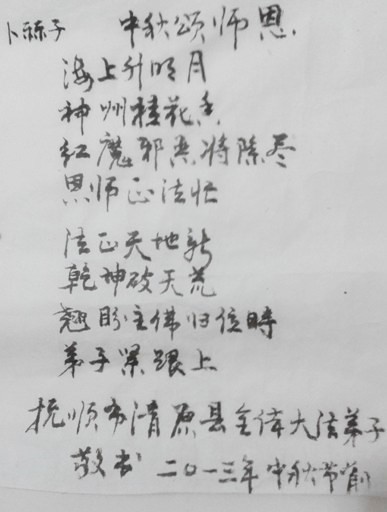 卜算子 中秋颂师恩
海上升明月
神州桂花香
红魔邪恶将除尽
恩师正法忙
法正天地新
乾坤破天荒
翘盼主佛归位時
弟子紧跟上
抚顺市清原县全体大法弟子
敬书 二〇一三年中秋节前